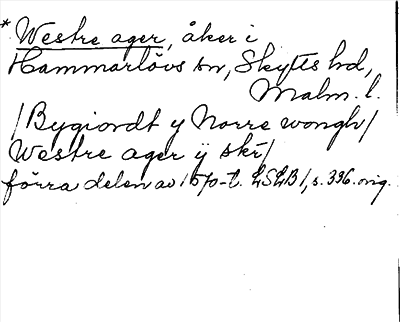 * Westre ager, åker i
Hammarlövs sn, Skytts hd,
Malm. l.
/Bygiordt y Norre wongh/
Westre ager ÿ skr/
förra delen av 1570-t. LSLB 1, s. 336. orig.